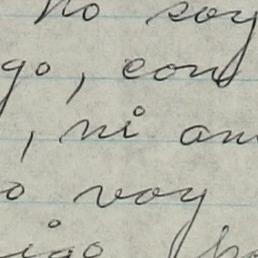 No soy
go, con
, ni am
o voy
igo